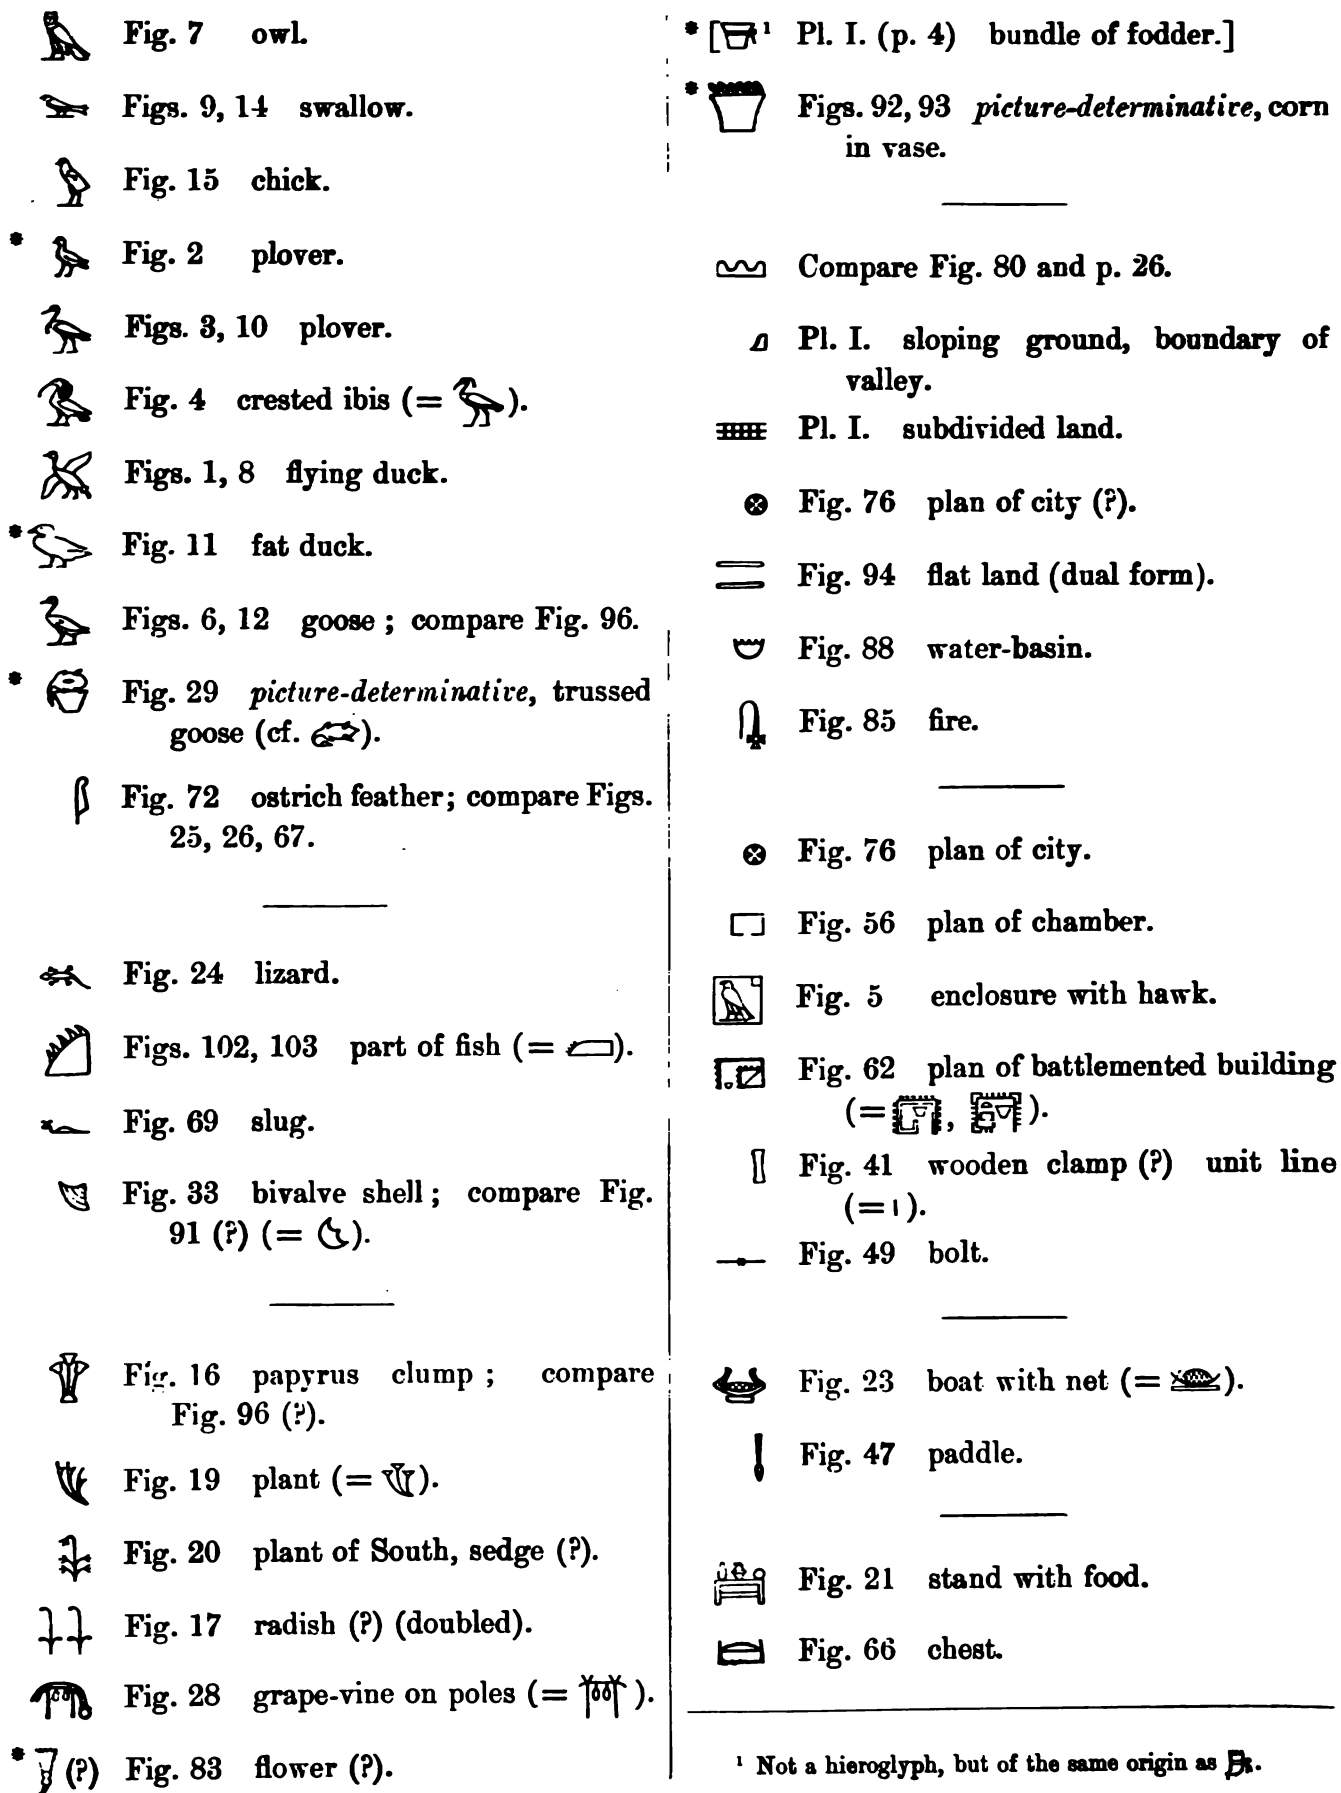 Fig. 7 owl.
Figs. 9, 14 swallow.
Fig. 15 chick.
* Fig. 2 plover.
Figs. 3, 10 plover.
Fig. 4 crested ibis (= ).
Figs. 1, 8 flying duck.
* Fig. 11 fat duck.
Figs. 6, 12 goose; compare Fig. 96.
* Fig. 29 picture-determinative, trussed
goose (cf. ).
Fig. 72 ostrich feather; compare Figs.
25, 26, 67.
Fig. 24 lizard.
Figs. 102, 103 part of fish (= ).
Fig. 69 slug.
Fig. 33 bivalve shell; compare Fig.
91 (?) (= ).
Fig. 16 papyrus clump; compare
Fig. 96 (?).
Fig. 19 plant (= ).
Fig. 20 plant of South, sedge (?).
Fig. 17 radish (?) (doubled).
Fig. 28 grape-vine on poles (= ).
* (?) Fig. 83 flower (?).
* [ ¹ Pl. I. (p. 4) bundle of fodder.]
* Figs. 92, 93 picture-determinative, corn
in vase.
Compare Fig. 80 and p. 26.
Pl. I. sloping ground, boundary of
valley.
Pl. I. subdivided land.
Fig. 76 plan of city (?).
Fig. 94 flat land (dual form).
Fig. 88 water-basin.
Fig. 85 fire.
Fig. 76 plan of city.
Fig. 56 plan of chamber.
Fig. 5 enclosure with hawk.
Fig. 62 plan of battlemented building
(= , ).
Fig. 41 wooden clamp (?) unit line
(= ı ).
Fig. 49 bolt.
Fig. 23 boat with net (= ).
Fig. 47 paddle.
Fig. 21 stand with food.
Fig. 66 chest.
¹ Not a hieroglyph, but of the same origin as .